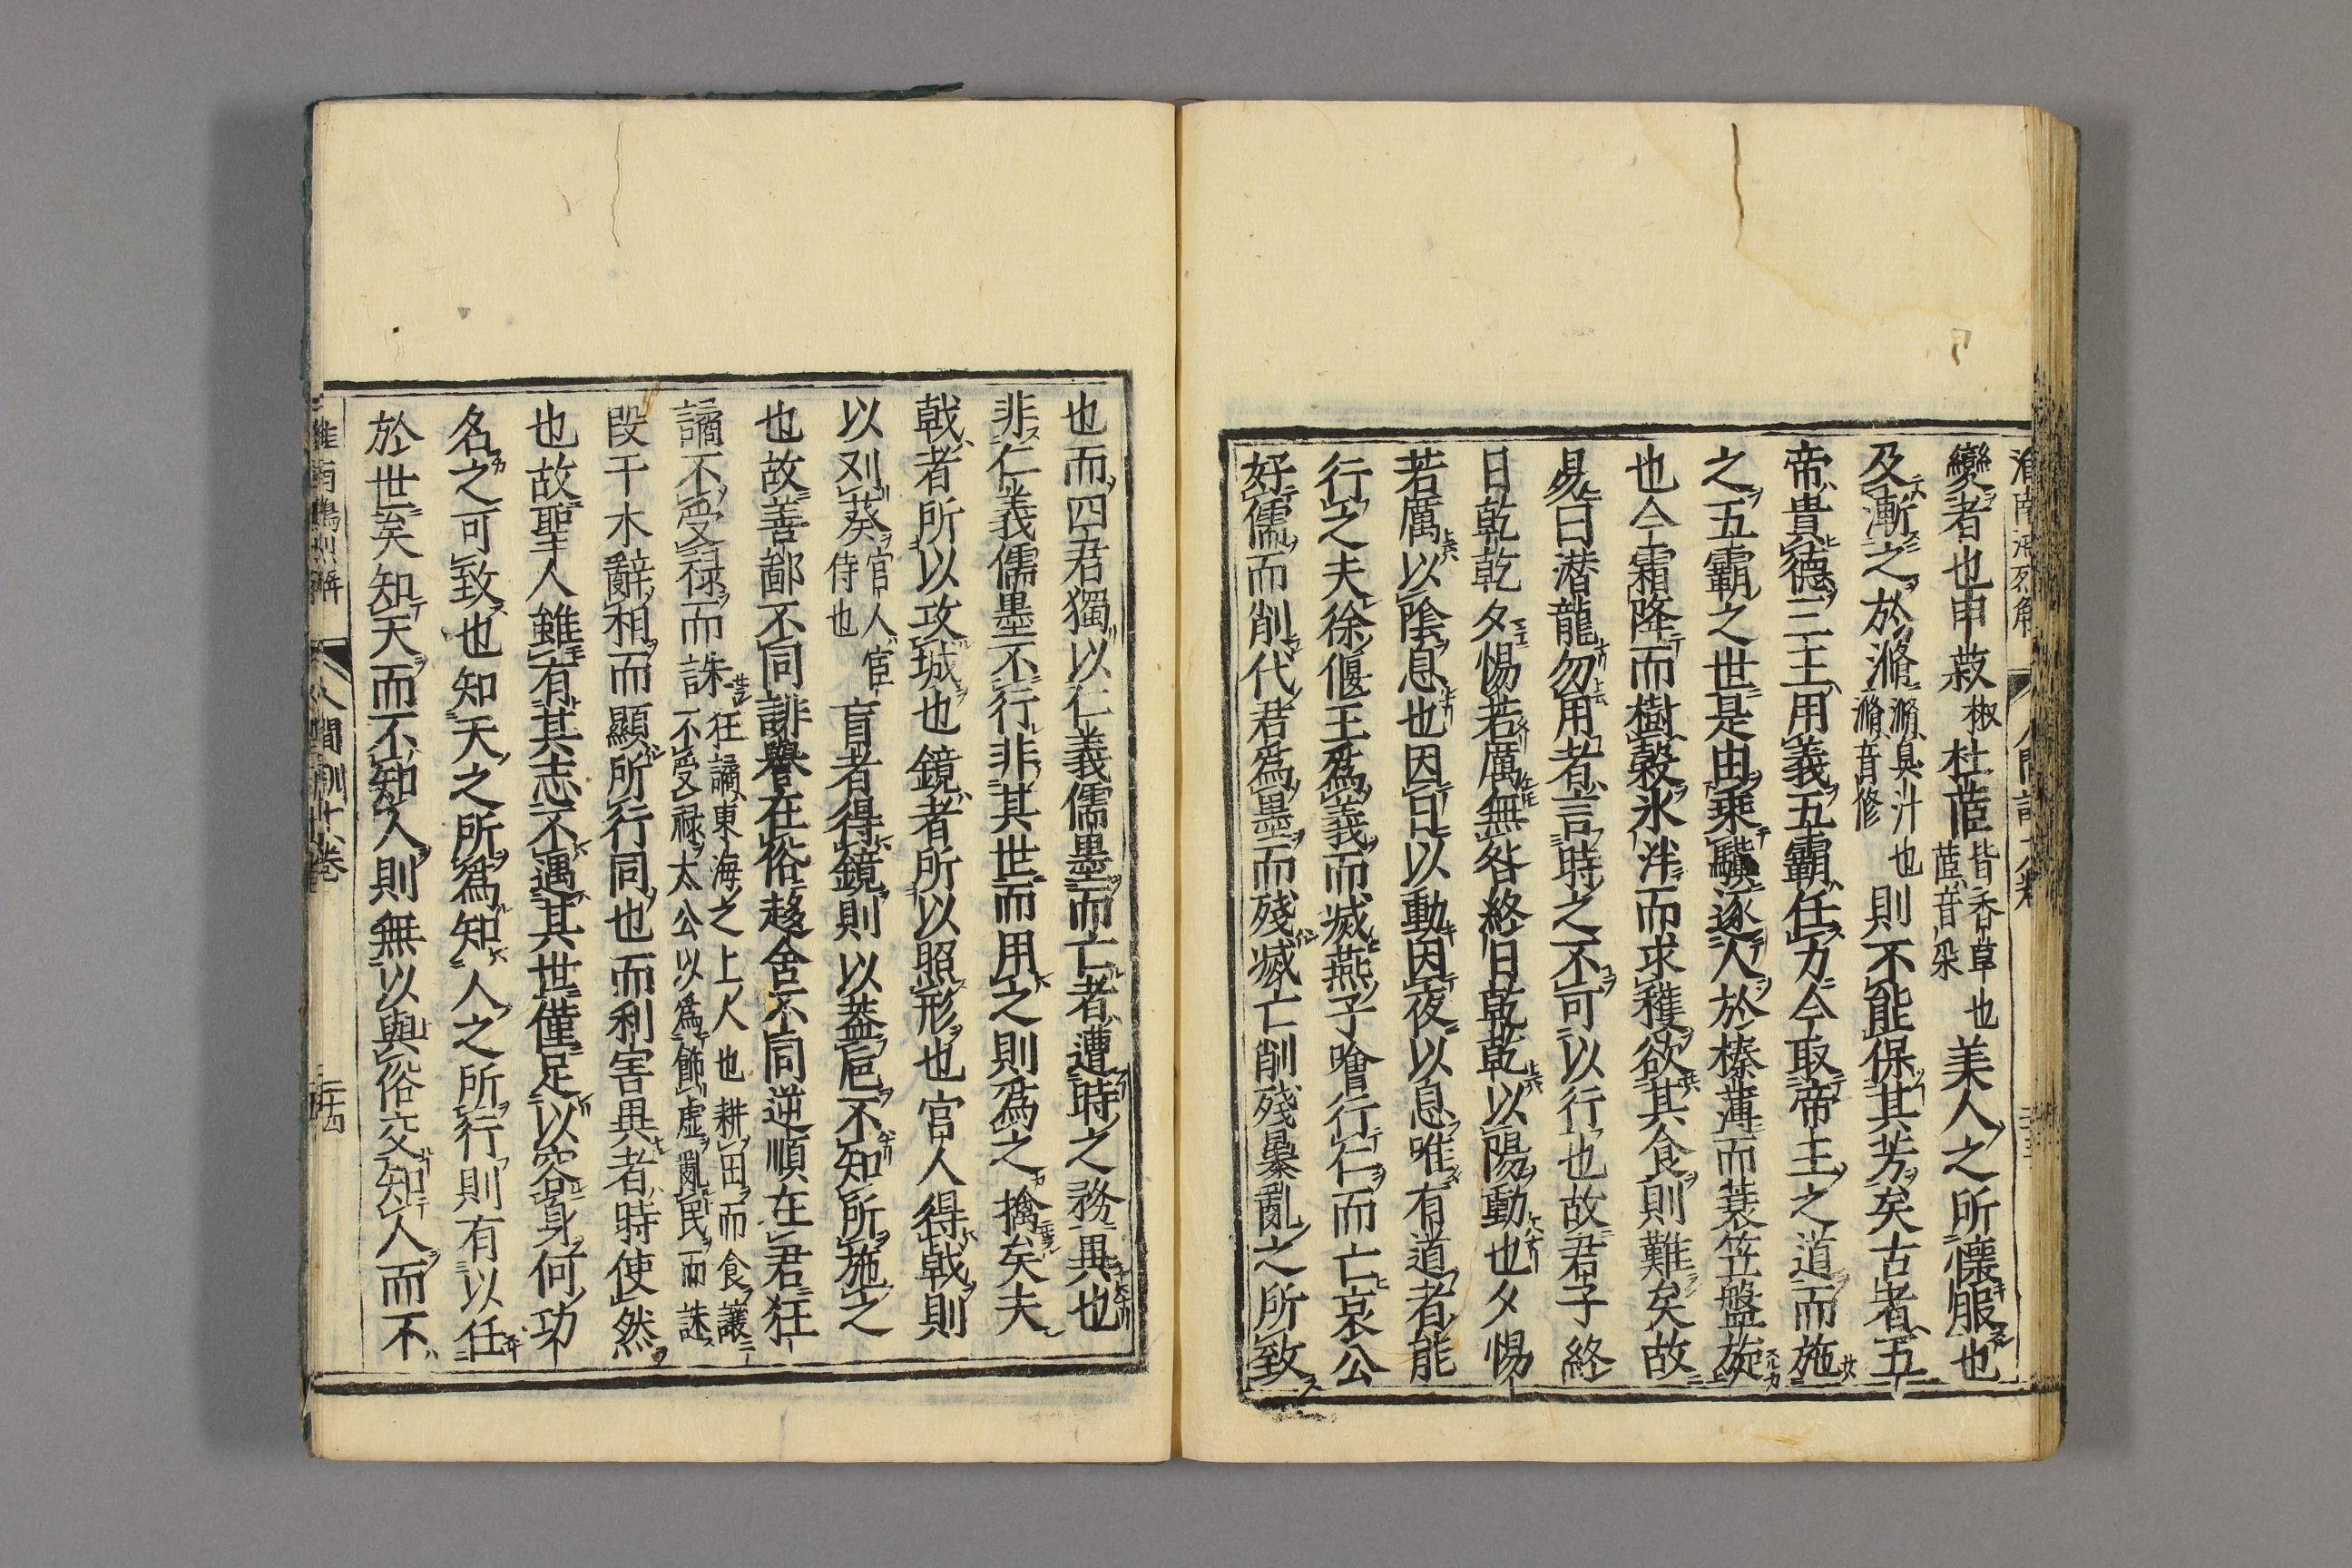 變者也申菽椒杜茝皆香草也茝音采美人之所懷服也
及漸之於滫滫臭汁也滫音修則不能保其芳矣古者五
帝貴德三王用義五霸任力今取帝王之道而施
之五霸之世是由乘驥逐人於榛薄而蓑笠盤旋
也今霜降而樹穀氷泮而求穫欲其食則難矣故
易曰潜龍勿用者言時之不可以行也故君子終
日乾乾夕惕若厲無咎終日乾乾以陽動也夕惕
若厲以陰息也因日以動因夜以息唯有道者能
行之夫徐偃王爲義而滅燕子噲行仁而亡哀公
好儒而削代君爲墨而殘滅亡削殘暴亂之所致
也而四君獨以仁義儒墨而亡者遭時之務異也
非仁義儒墨不行非其世而用之則爲之擒矣夫
戟者所以攻城也鏡者所以照形也官人得戟則
以刈葵官人宦侍也盲者得鏡則以葢巵不知所施之
也故善鄙不同誹譽在俗趍舍不同逆順在君狂
譎不受禄而誅狂譎東海之上人也耕田而食讓不受禄太公以爲飾虚亂民而誅
段干木辭相而顯所行同也而利害異者時使然
也故聖人雖有其志不遇其世僅足以容身何功
名之可致也知天之所爲知人之所行則有以任
於世矣知天而不知人則無以與俗交知人而不
淮南鴻烈解 人間訓十八卷 二十四